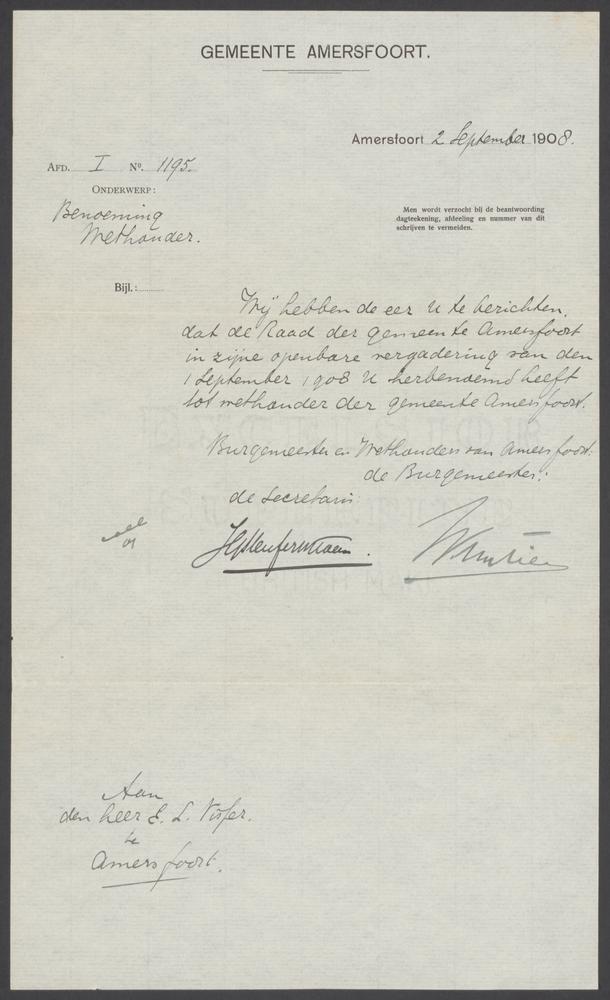 GEMEENTE AMERSFOORT.
Amersfoort 2 September 1908.
AFD. I No. 1195.
ONDERWERP:
Benoeming
Wethouder.
Men wordt verzocht bij de beantwoording
dagteekening, afdeeling en nummer van dit
schrijven te vermelden.
Bijl.:
Wij hebben de eer U te berichten,
dat de Raad der gemeente Amersfoort
in zijne openbare vergadering van den
1 September 1908 U herbenoemd heeft
tot wethouder der gemeente Amersfoort.
Burgemeester en Wethouders van Amersfoort:
de Burgemeester:
de Secretaris:
Aan
den heer E. L. Visser.
te
Amersfoort.